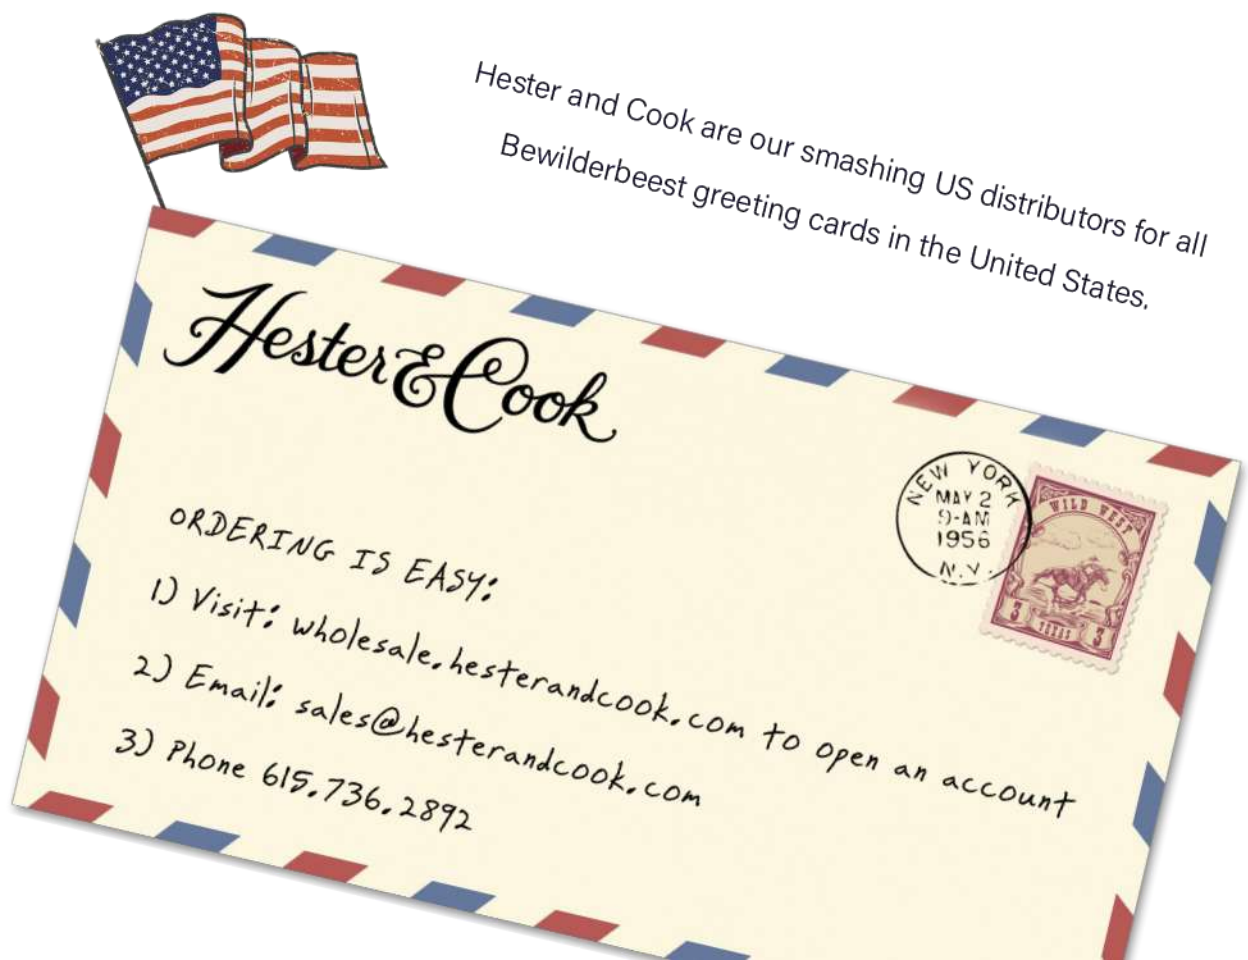 Hester and Cook are our smashing US distributors for all
Bewilderbeest greeting cards in the United States.
Hester & Cook
NEW YORK
MAY 2
9-AM
1956
N.Y.
WILD WEST
3 TEXAS 3
ORDERING IS EASY:
1) Visit: wholesale.hesterandcook.com to open an account
2) Email: sales@hesterandcook.com
3) Phone 615.736.2892